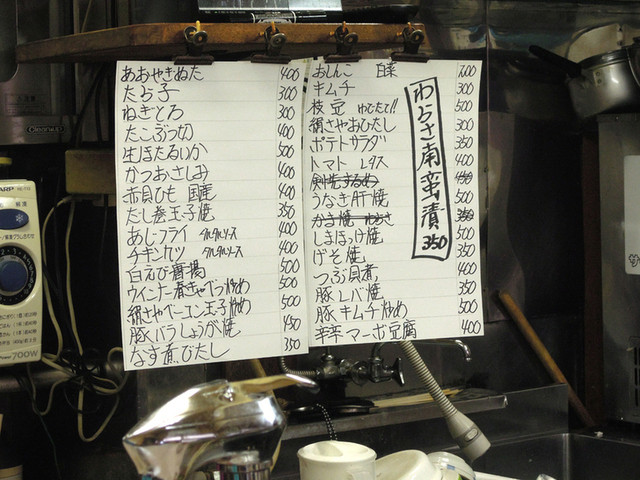 あおやぎぬた 400
たらこ 300
ねぎとろ 300
たこぶつ切 400
生ほたるいか 500
かつおさしみ 400
赤貝ひも 国産 400
だし巻玉子焼 350
あじフライ タルタルソース 400
チキンカツ タルタルソース 400
白えび唐揚 500
ウインナー春きゃべつ炒め 500
絹さやベーコン玉子炒め 500
豚バラしょうが焼 450
なす煮びたし 350
おしんこ 白菜
キムチ 300
枝豆 ゆでたて!! 500
絹さやおひたし 300
ポテトサラダ 350
トマト レタス 400
うなぎ肝焼 500
しまほっけ焼 500
げそ焼
つぶ貝煮 400
豚レバ焼 350
豚キムチ炒め 500
辛辛マーボ豆腐 400
わかさぎ南蛮漬 350
SHARP
700W